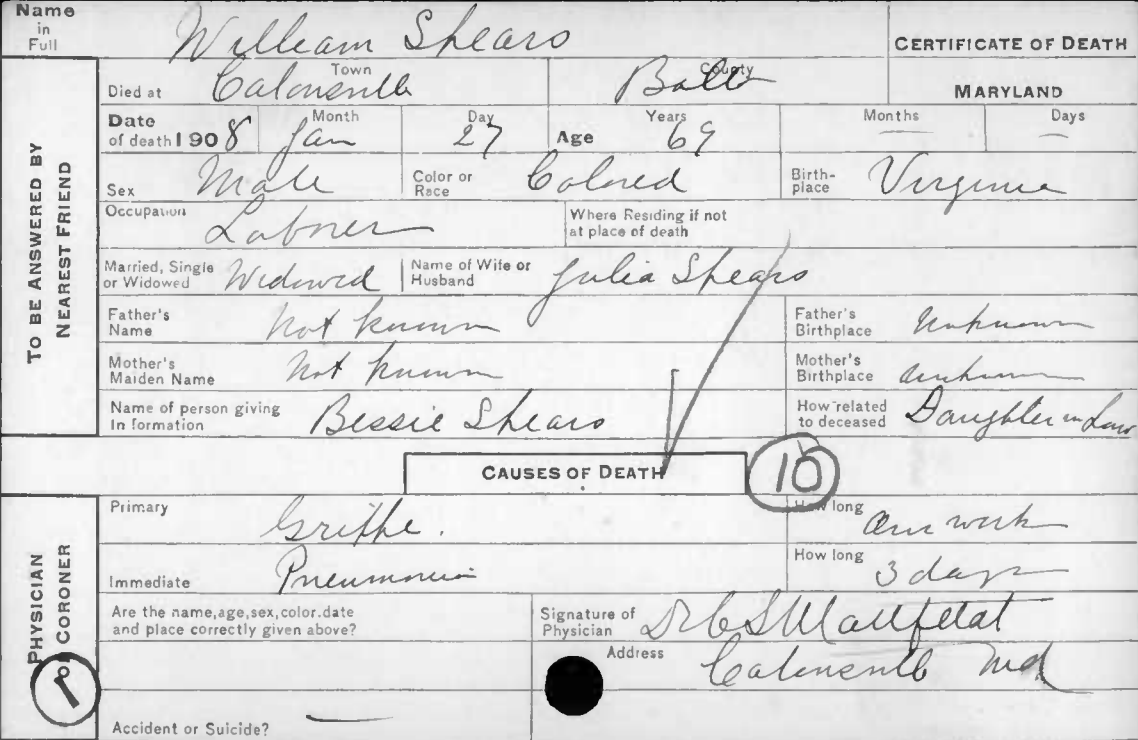 Name in Full William Shears
CERTIFICATE OF DEATH
TO BE ANSWERED BY NEAREST FRIEND
Died at Town Catonsville County Balto MARYLAND
Date of death 1908 Month Jan Day 27 Age Years 69 Months — Days —
Sex Male Color or Race Colored Birth-place Virginia
Occupation Laborer Where Residing if not at place of death
Married, Single or Widowed Widowed Name of Wife or Husband Julia Shears
Father's Name Not known Father's Birthplace Unknown
Mother's Maiden Name Not known Mother's Birthplace Unknown
Name of person giving Information Bessie Shears How related to deceased Daughter in Law
CAUSES OF DEATH 10
PHYSICIAN OR CORONER
Primary Grippe. How long One week
Immediate Pneumonia How long 3 days
Are the name, age, sex, color, date and place correctly given above? Signature of Physician Dr C S
Address Catonsville Md
1
Accident or Suicide? —